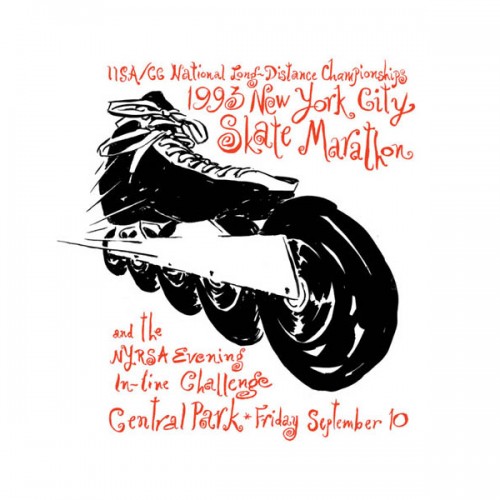 IISA/CG National Long-Distance Championships
1993 New York City
Skate Marathon
and the
NYRSA Evening
In-line Challenge
Central Park * Friday September 10